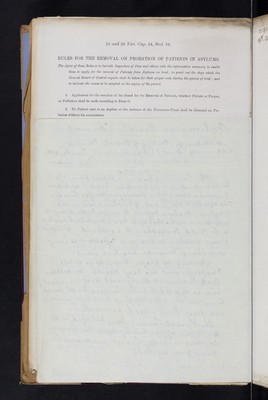 25 and 26 Vict. Cap. 54, Sect. 16.
RULES FOR THE REMOVAL ON PROBATION OF PATIENTS IN ASYLUMS.
The object of these Rules is to furnish Inspectors of Poor and others with the information necessary to enable
them to apply for the removal of Patients from Asylums on trial; to point out the steps which the
General Board of Control require shall be taken for their proper care during the period of trial; and
to indicate the course to be adopted at the expiry of the period.
1. Application for the sanction of the Board for the Removal of Patients, whether Private or Pauper,
on Probation shall be made according to Form
2. No Patient sent to an Asylum at the instance of the Procurator-Fiscal shall be liberated on Pro-
bation without his concurrence.